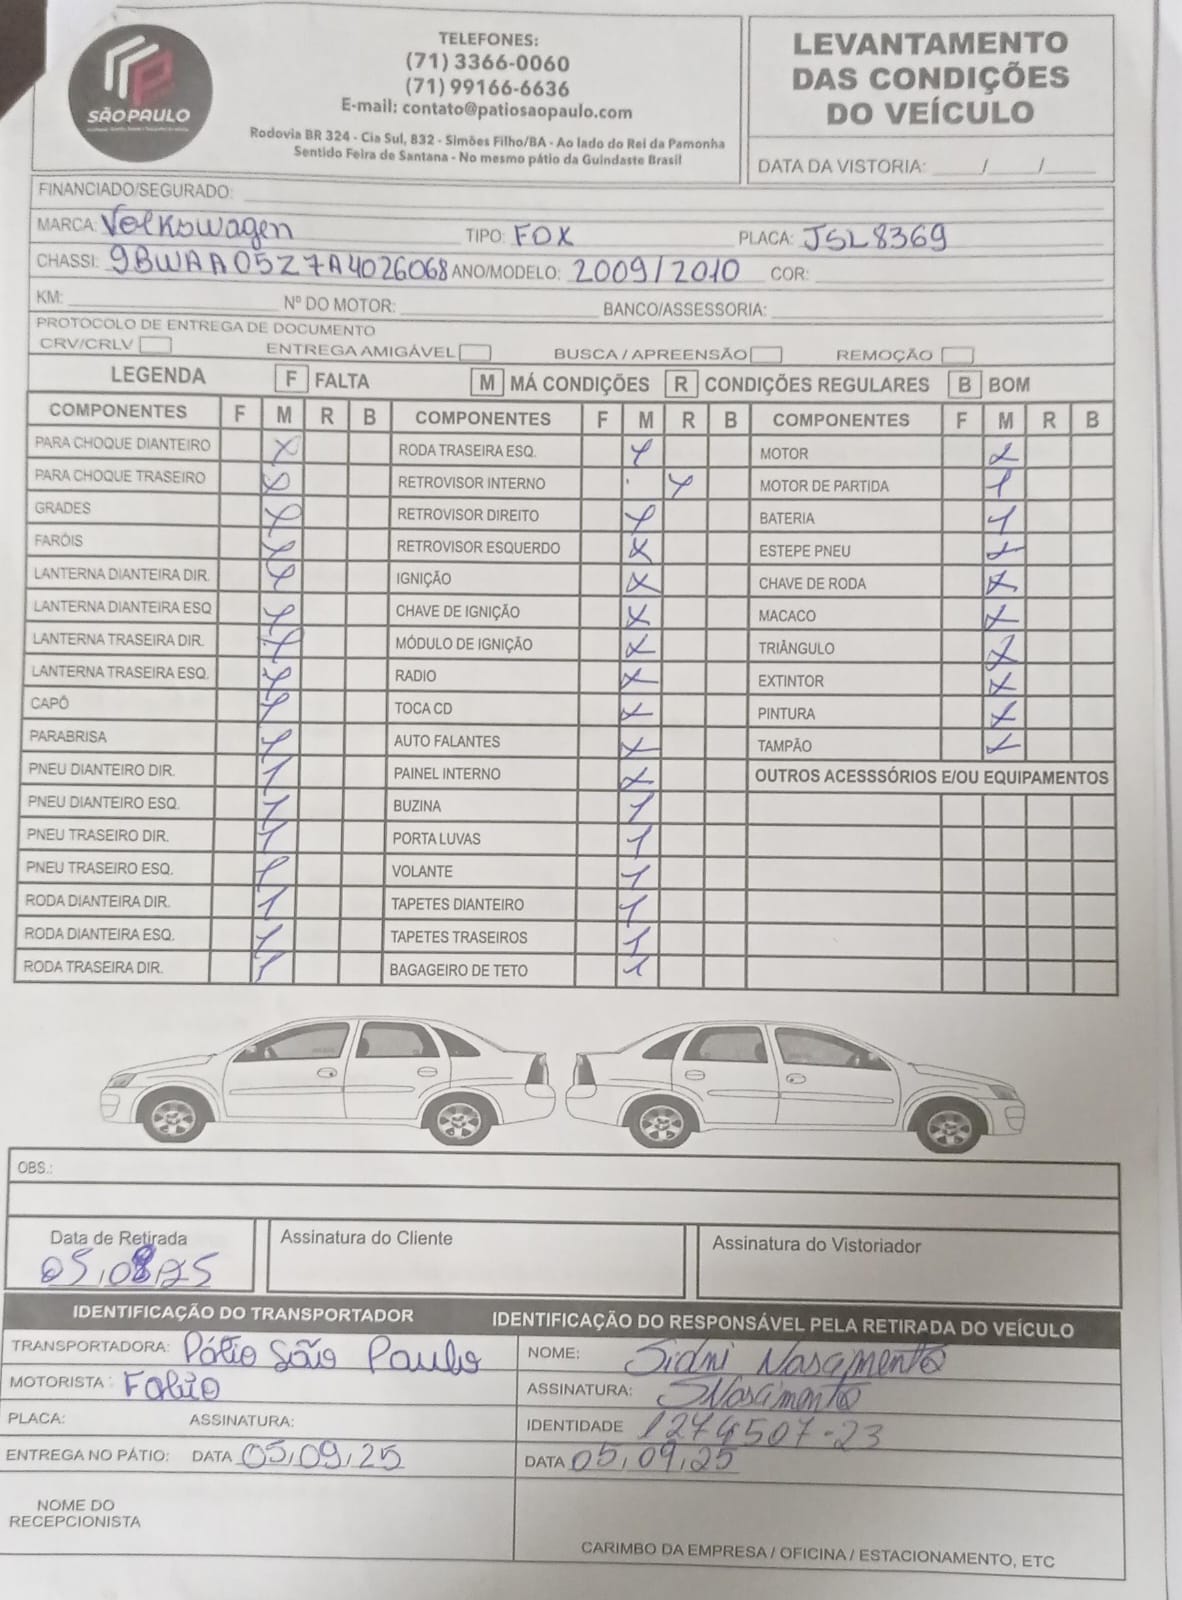 SÃO PAULO
TELEFONES:
(71) 3366-0060
(71) 99166-6636
E-mail: contato@patiosaopaulo.com
Rodovia BR 324 - Cia Sul, 832 - Simões Filho/BA - Ao lado do Rei da Pamonha
Sentido Feira de Santana - No mesmo pátio da Guindaste Brasil
LEVANTAMENTO
DAS CONDIÇÕES
DO VEÍCULO
DATA DA VISTORIA: ____/____/____
FINANCIADO/SEGURADO:
MARCA: Volkswagen TIPO: FOX PLACA: JSL8369
CHASSI: 9BWAA05Z7A4026068 ANO/MODELO: 2009/2010 COR:
KM: Nº DO MOTOR: BANCO/ASSESSORIA:
PROTOCOLO DE ENTREGA DE DOCUMENTO
CRV/CRLV ENTREGA AMIGÁVEL BUSCA / APREENSÃO REMOÇÃO
LEGENDA F FALTA M MÁ CONDIÇÕES R CONDIÇÕES REGULARES B BOM
COMPONENTES F M R B COMPONENTES F M R B COMPONENTES F M R B
PARA CHOQUE DIANTEIRO X RODA TRASEIRA ESQ. X MOTOR X
PARA CHOQUE TRASEIRO X RETROVISOR INTERNO X MOTOR DE PARTIDA X
GRADES X RETROVISOR DIREITO X BATERIA X
FARÓIS X RETROVISOR ESQUERDO X ESTEPE PNEU X
LANTERNA DIANTEIRA DIR. X IGNIÇÃO X CHAVE DE RODA X
LANTERNA DIANTEIRA ESQ X CHAVE DE IGNIÇÃO X MACACO X
LANTERNA TRASEIRA DIR. X MÓDULO DE IGNIÇÃO X TRIÂNGULO X
LANTERNA TRASEIRA ESQ. X RADIO X EXTINTOR X
CAPÔ X TOCA CD X PINTURA X
PARABRISA X AUTO FALANTES X TAMPÃO X
PNEU DIANTEIRO DIR. X PAINEL INTERNO X OUTROS ACESSSÓRIOS E/OU EQUIPAMENTOS
PNEU DIANTEIRO ESQ. X BUZINA X
PNEU TRASEIRO DIR. X PORTA LUVAS X
PNEU TRASEIRO ESQ. X VOLANTE X
RODA DIANTEIRA DIR. X TAPETES DIANTEIRO X
RODA DIANTEIRA ESQ. X TAPETES TRASEIROS X
RODA TRASEIRA DIR. X BAGAGEIRO DE TETO X
OBS.:
Data de Retirada
05,08,25
Assinatura do Cliente
Assinatura do Vistoriador
IDENTIFICAÇÃO DO TRANSPORTADOR
TRANSPORTADORA: Pátio São Paulo
MOTORISTA: Fabio
PLACA: ASSINATURA:
ENTREGA NO PÁTIO: DATA 05,09,25
NOME DO
RECEPCIONISTA
IDENTIFICAÇÃO DO RESPONSÁVEL PELA RETIRADA DO VEÍCULO
NOME: Sidni Nascimento
ASSINATURA: SNascimento
IDENTIDADE 1274507-23
DATA 05,09,25
CARIMBO DA EMPRESA / OFICINA / ESTACIONAMENTO, ETC